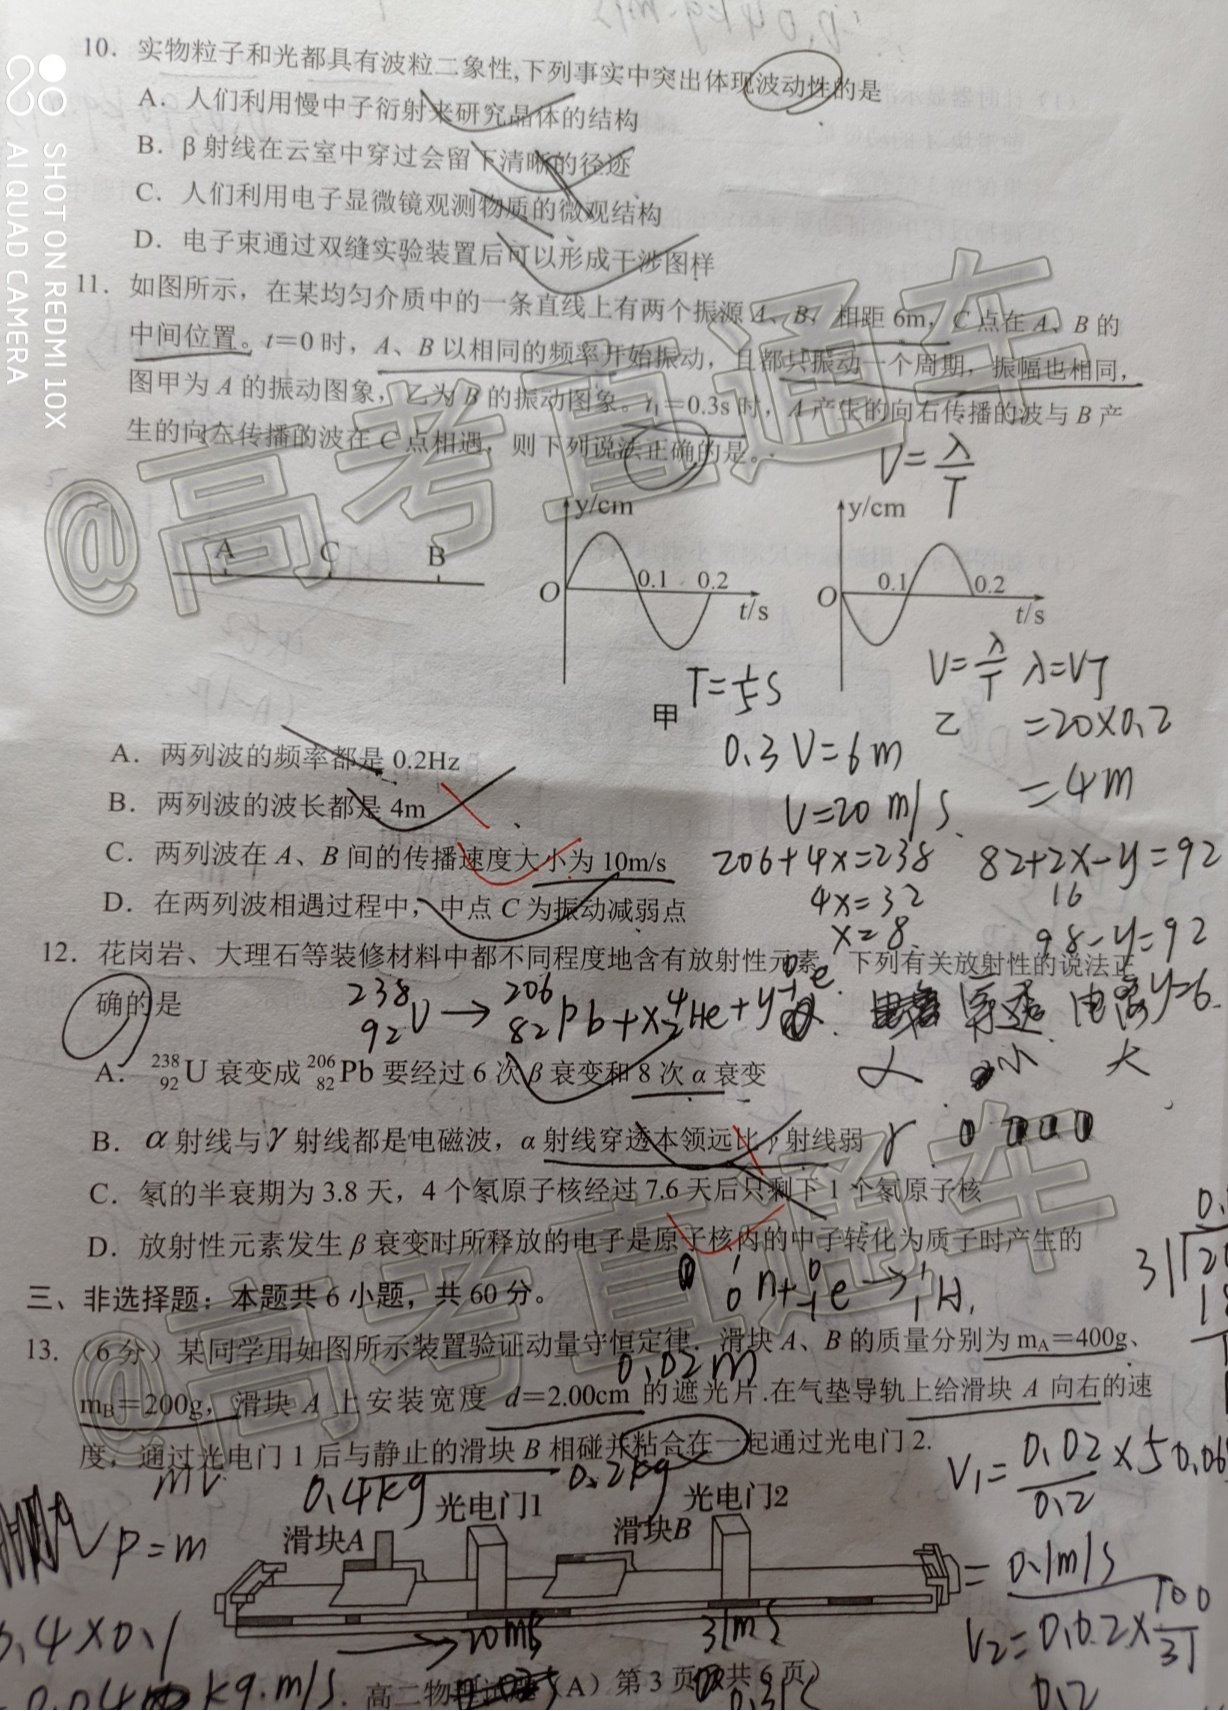 10. 实物粒子和光都具有波粒二象性,下列事实中突出体现波动性的是
A. 人们利用慢中子衍射来研究晶体的结构
B. β射线在云室中穿过会留下清晰的径迹
C. 人们利用电子显微镜观测物质的微观结构
D. 电子束通过双缝实验装置后可以形成干涉图样
11. 如图所示，在某均匀介质中的一条直线上有两个振源A、B，相距6m，C点在A、B的
中间位置。t=0时，A、B以相同的频率开始振动，且都只振动一个周期，振幅也相同，
图甲为A的振动图象，乙为B的振动图象。t₁=0.3s时，A产生的向右传播的波与B产
生的向左传播的波在C点相遇，则下列说法正确的是。
V=λ/T
A C B
y/cm O 0.1 0.2 t/s
y/cm O 0.1 0.2 t/s
甲
乙
T=1/5 s
V=λ/T λ=VT
=20×0.2
=4m
0.3V=6m
V=20m/s
A. 两列波的频率都是0.2Hz
B. 两列波的波长都是4m
C. 两列波在A、B间的传播速度大小为10m/s
D. 在两列波相遇过程中，中点C为振动减弱点
206+4x=238
4x=32
x=8
82+2x-y=92
16
98-y=92
y=6
12. 花岗岩、大理石等装修材料中都不同程度地含有放射性元素，下列有关放射性的说法正
确的是
²³⁸₉₂U→²⁰⁶₈₂Pb+x⁴₂He+y⁰₋₁e
穿透 电离
α 小 大
γ
A. ²³⁸₉₂U衰变成²⁰⁶₈₂Pb要经过6次β衰变和8次α衰变
B. α射线与γ射线都是电磁波，α射线穿透本领远比γ射线弱
C. 氡的半衰期为3.8天，4个氡原子核经过7.6天后只剩下1个氡原子核
D. 放射性元素发生β衰变时所释放的电子是原子核内的中子转化为质子时产生的
¹₀n+⁰₋₁e→¹₁H
三、非选择题：本题共6小题，共60分。
13.（6分）某同学用如图所示装置验证动量守恒定律. 滑块A、B的质量分别为mA=400g、
0.02m
mB=200g，滑块A上安装宽度d=2.00cm的遮光片.在气垫导轨上给滑块A向右的速
度，通过光电门1后与静止的滑块B相碰并粘合在一起通过光电门2.
mv
0.4kg
0.2kg
V₁=0.02/0.2×5
=0.1m/s
P=m
滑块A 光电门1 滑块B 光电门2
20ms
31ms
V₂=0.02×100/31
0.4×0.1
kg·m/s
高二物理试题（A）第3页（共6页）
SHOT ON REDMI 10X
AI QUAD CAMERA
@高考直通车
@高考直通车